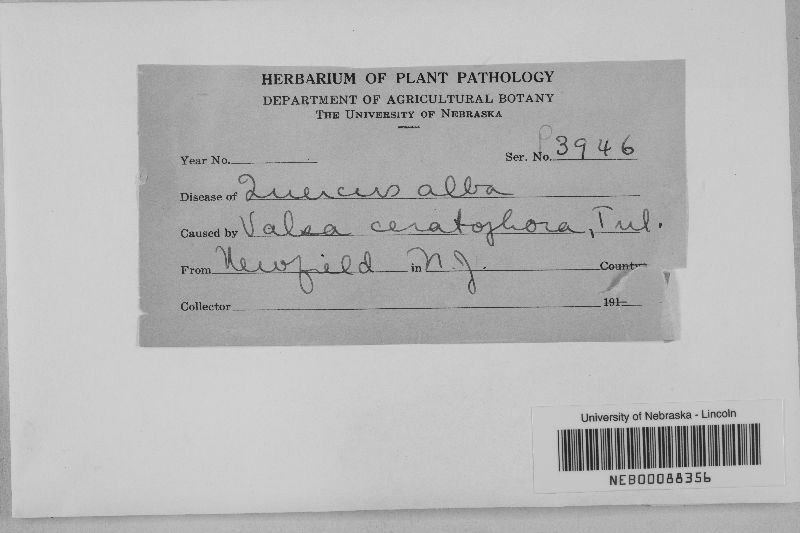 HERBARIUM OF PLANT PATHOLOGY
DEPARTMENT OF AGRICULTURAL BOTANY
THE UNIVERSITY OF NEBRASKA
Year No. Ser. No. P3946
Disease of Quercus alba
Caused by Valsa ceratophora, Tul.
From Newfield in N.J. County
Collector 191
University of Nebraska - Lincoln
NEB00088356